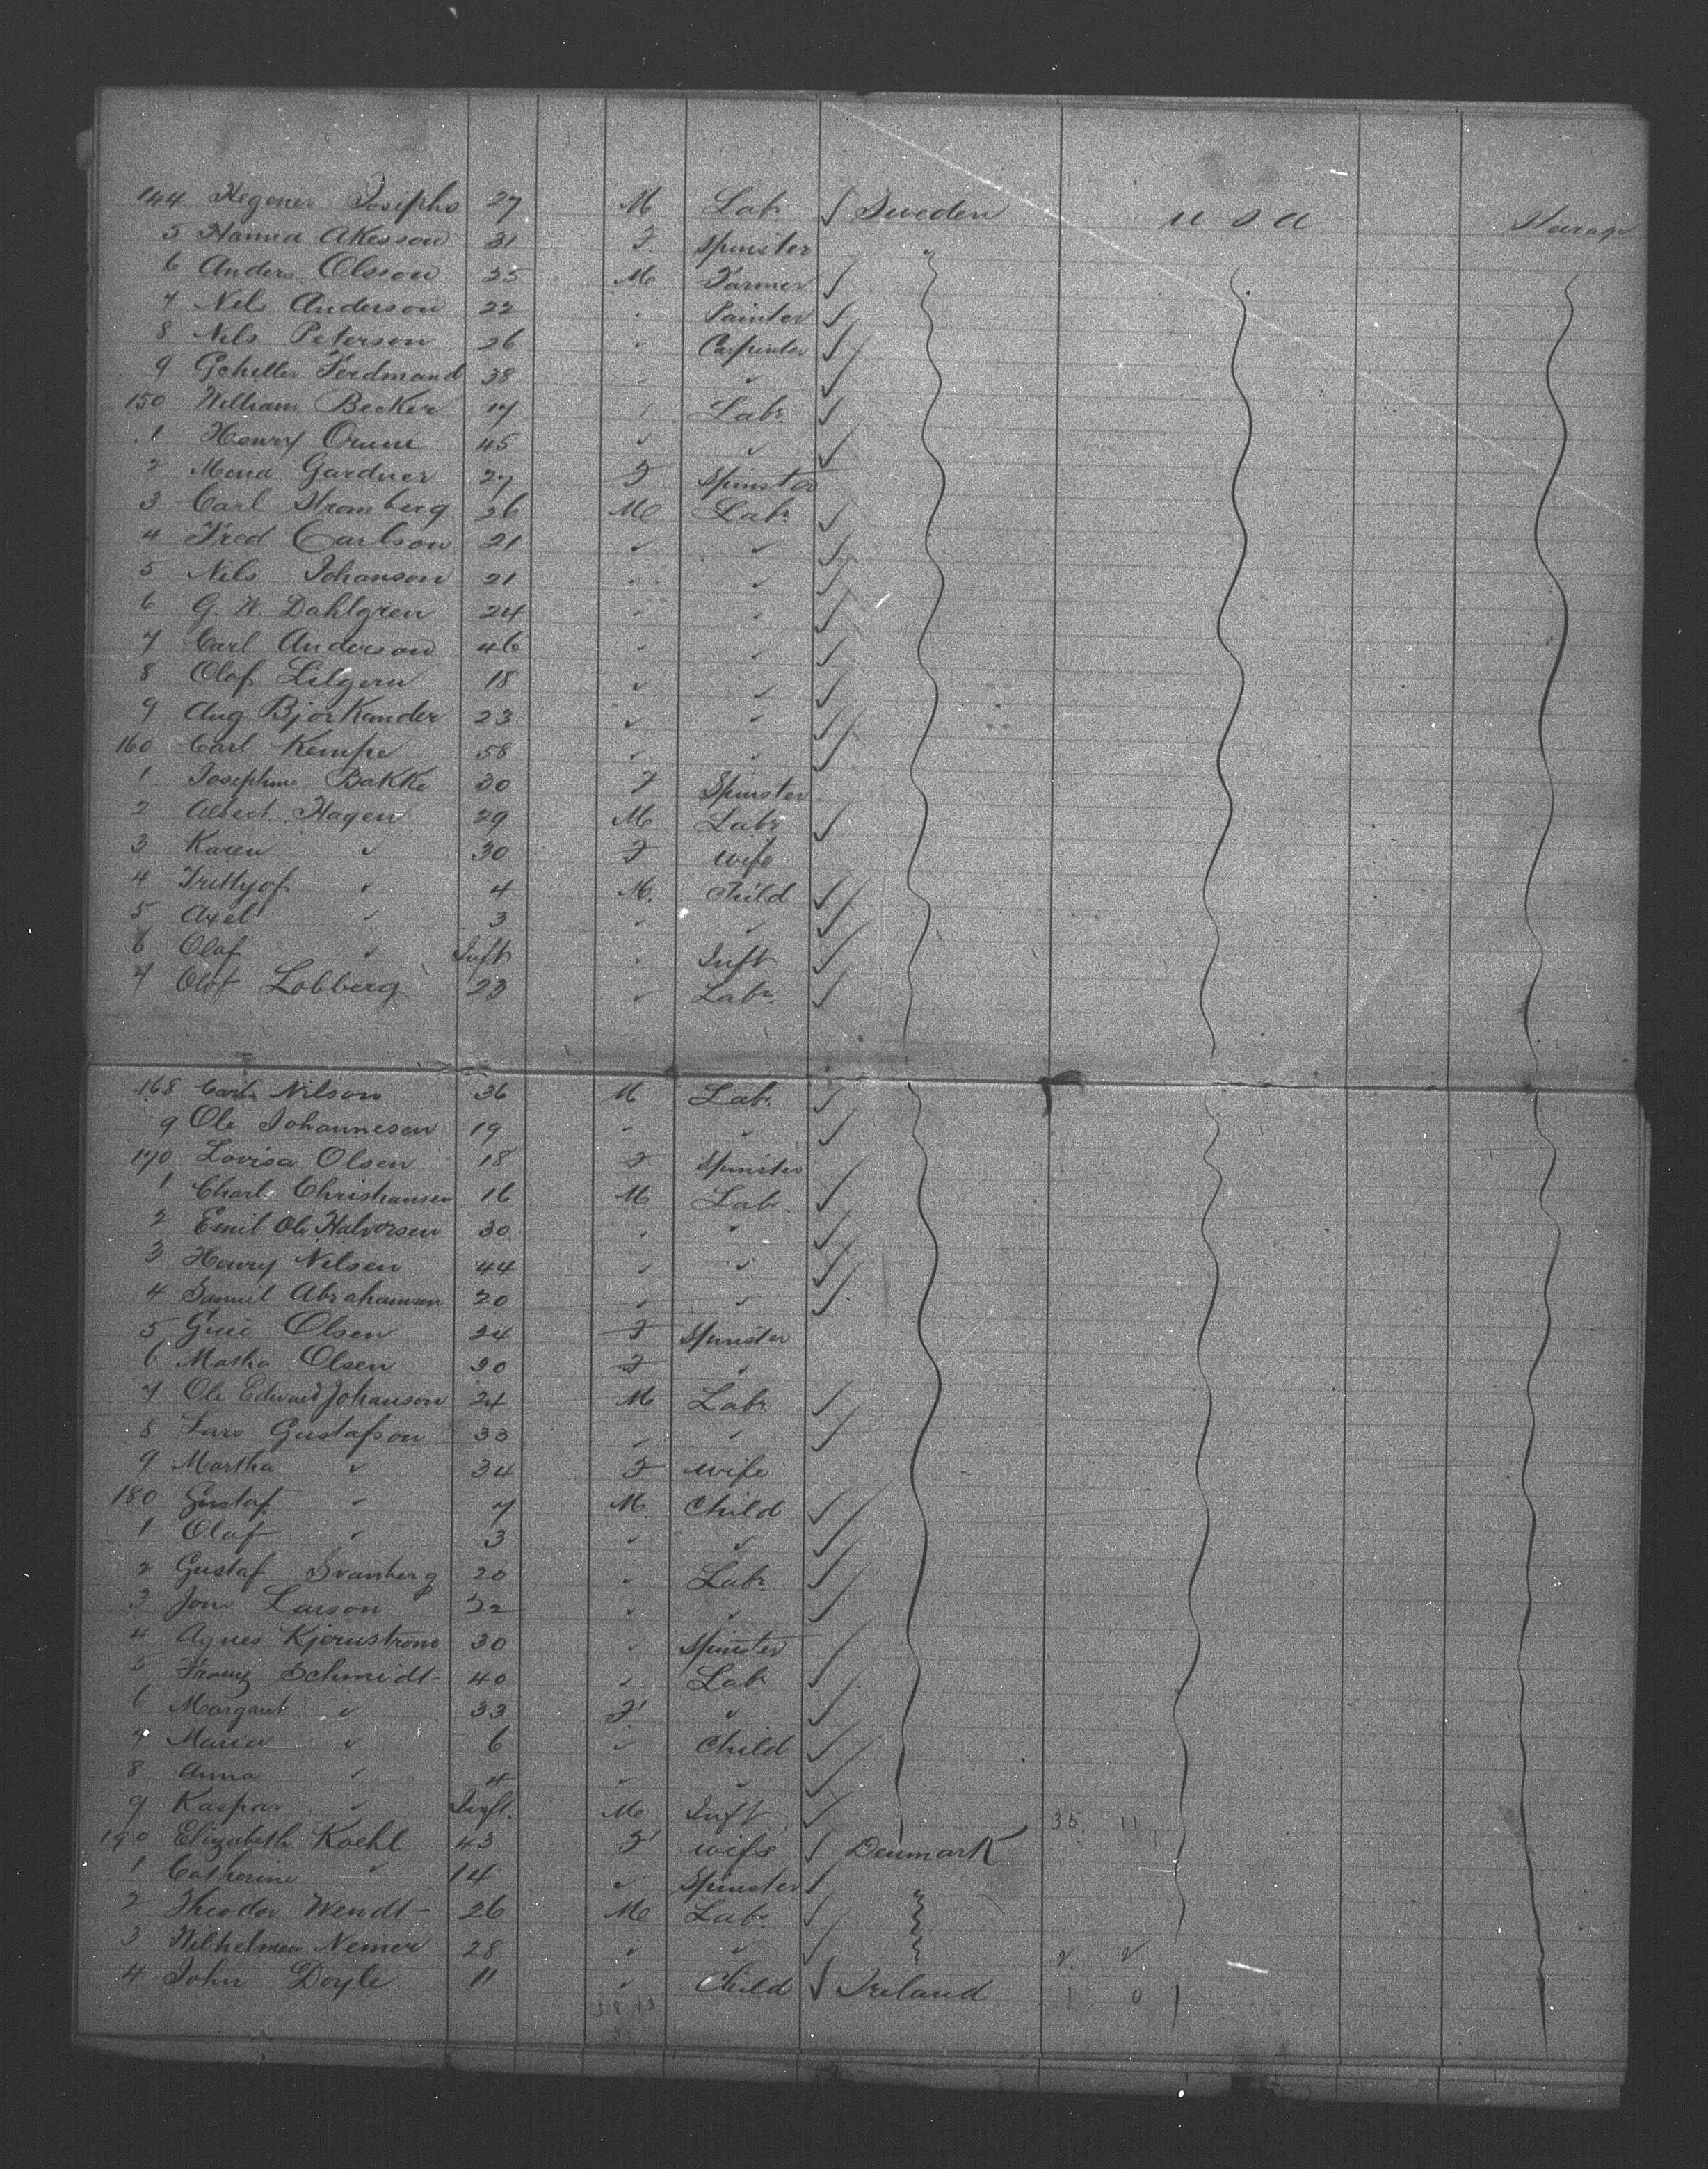 144 Hegener Josephs 27 M Lab. Sweden U S A Steerage
5 Hanna Akesson 31 F Spinster
6 Anders Olsson 25 M Farmer
7 Nels Anderson 22 " Painter
8 Nils Peterson 26 " Carpenter
9 Geheller Ferdmand 38 " "
150 William Becker 17 " Labr.
1 Henry Orum 45 " "
2 Mona Gardner 27 F Spinster
3 Carl Stromberg 26 M Labr
4 Fred Carlson 21 " "
5 Nils Johanson 21 " "
6 G. W. Dahlgren 24 " "
7 Carl Anderson 46 " "
8 Olof Lilgern 18 " "
9 Aug Bjorkander 23 " "
160 Carl Kempe 58 " "
1 Josephine Bakke 30 F Spinster
2 Albert Hagen 29 M Labr
3 Karen " 30 F Wife
4 Trittyof " 4 M. Child
5 Axel " 3 " "
6 Olaf " Inft " Inft
7 Olof Lobberg 23 " Labr.
168 Carl Nilson 36 M Lab.
9 Ole Johannesen 19 " "
170 Lovisa Olsen 18 F Spinster
1 Charls Christiansen 16 M Labr.
2 Emil Ole Halvorsen 30 " "
3 Henry Nelsen 44 " "
4 Samuel Abrahamsen 20 " "
5 Olsen 24 F Spinster
6 Matha Olsen 30 F "
7 Ole Edward Johanson 24 M Labr.
8 Lars Gustafson 33 " "
9 Martha " 34 F Wife
180 Gustaf " 7 M. Child
1 Olaf " 3 " "
2 Gustaf Svanberg 20 " Labr.
3 Jons Larson 22 " "
4 Agnes Kjernstrom 30 " Spinster
5 Franz Schmidt 40 " Labr
6 Margaret " 33 F "
7 Maria " 6 " Child
8 Anna " 4 " "
9 Kaspar " Inft. M Inft 35. 11
190 Elizabeth Koehl 43 F Wife Denmark
1 Catherine " 14 " Spinster
2 Theodor Wendt 26 M Labr.
3 Wilhelmen Nemer 28 " " 2. 2
4 John Doyle 11 " Child Ireland 1 0
38 13